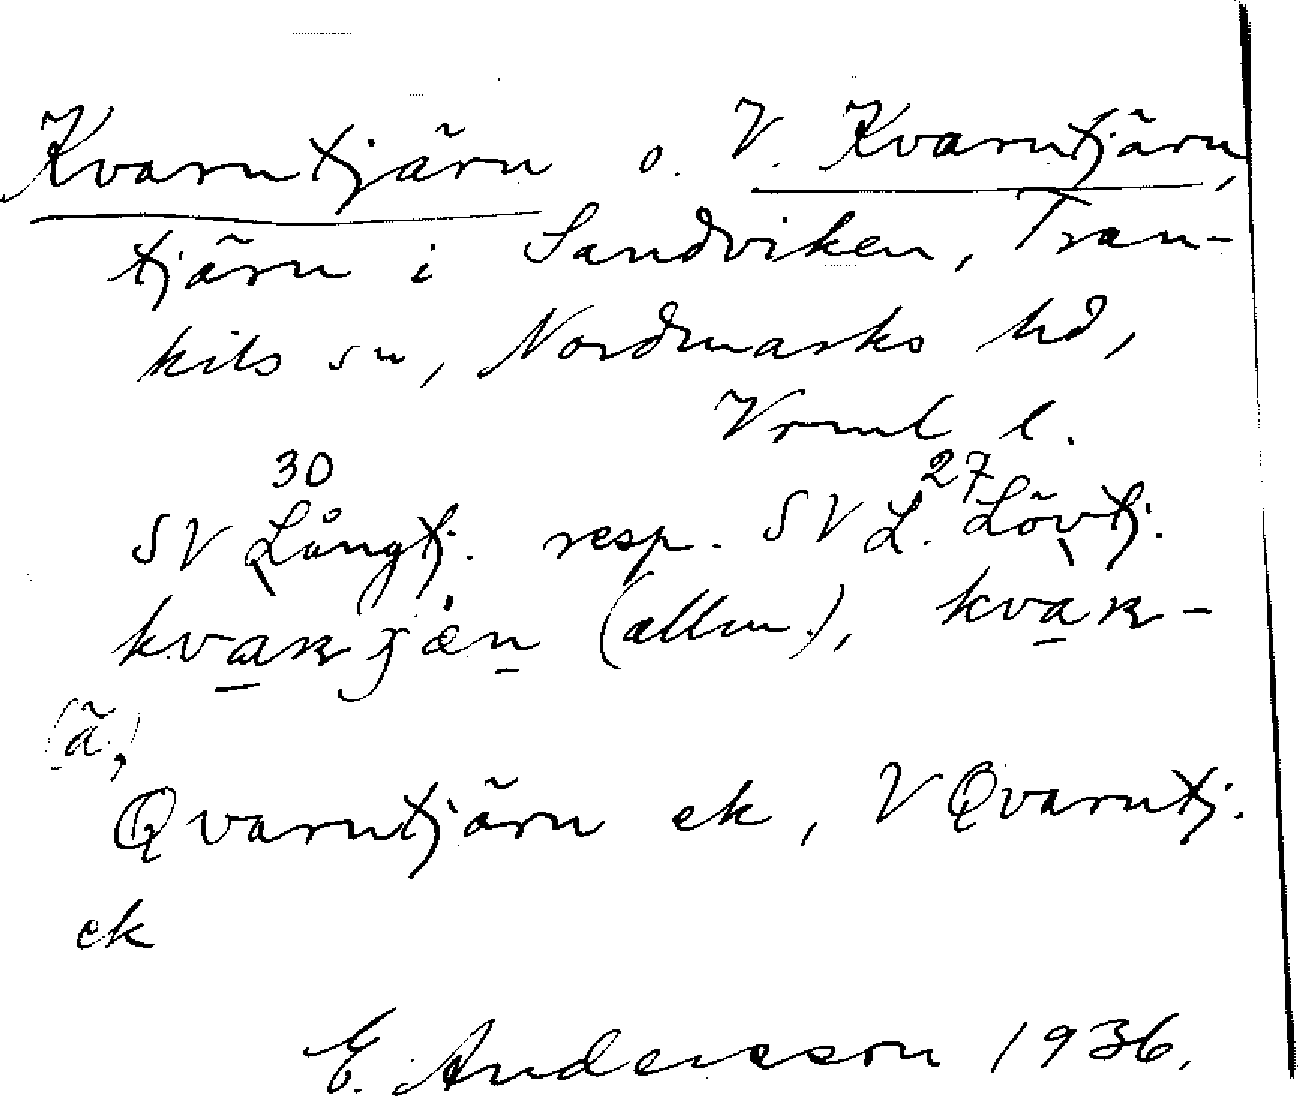 Kvarntjärn o. V. Kvarntjärn,
tjärn i Sandviken, Tran-
kils sn, Nordmarks hd,
Vrml l.
30 27
SV Långtj. resp. SV L. Lövtj.
(allm.),
(ä,)
Qvarntjärn ek, V Qvarntj.
ek
E. Andersson 1936.